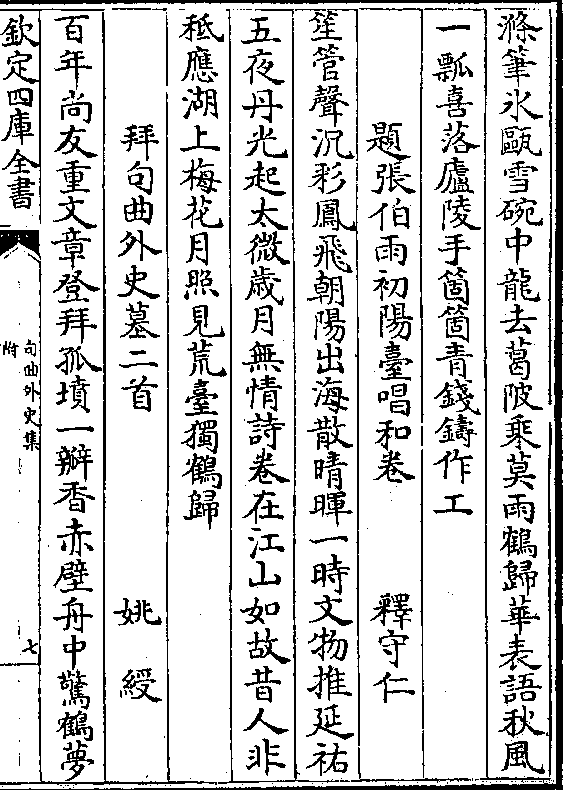 滌筆氷甌雪碗中龍去葛陂乘莫雨鶴歸華表語秋風
一瓢喜落廬陵手箇箇青錢鑄作工
題張伯雨初陽臺唱和卷 釋守仁
笙管聲沉彩鳳飛朝陽出海散晴暉一時文物推延祐
五夜丹光起太微歲月無情詩卷在江山如故昔人非
秪應湖上梅花月照見荒臺獨鶴歸
拜句曲外史墓二首 姚綬
百年尚友重文章登拜孤墳一瓣香赤壁舟中驚鶴夢
欽定四庫全書
句曲外史集
附
七